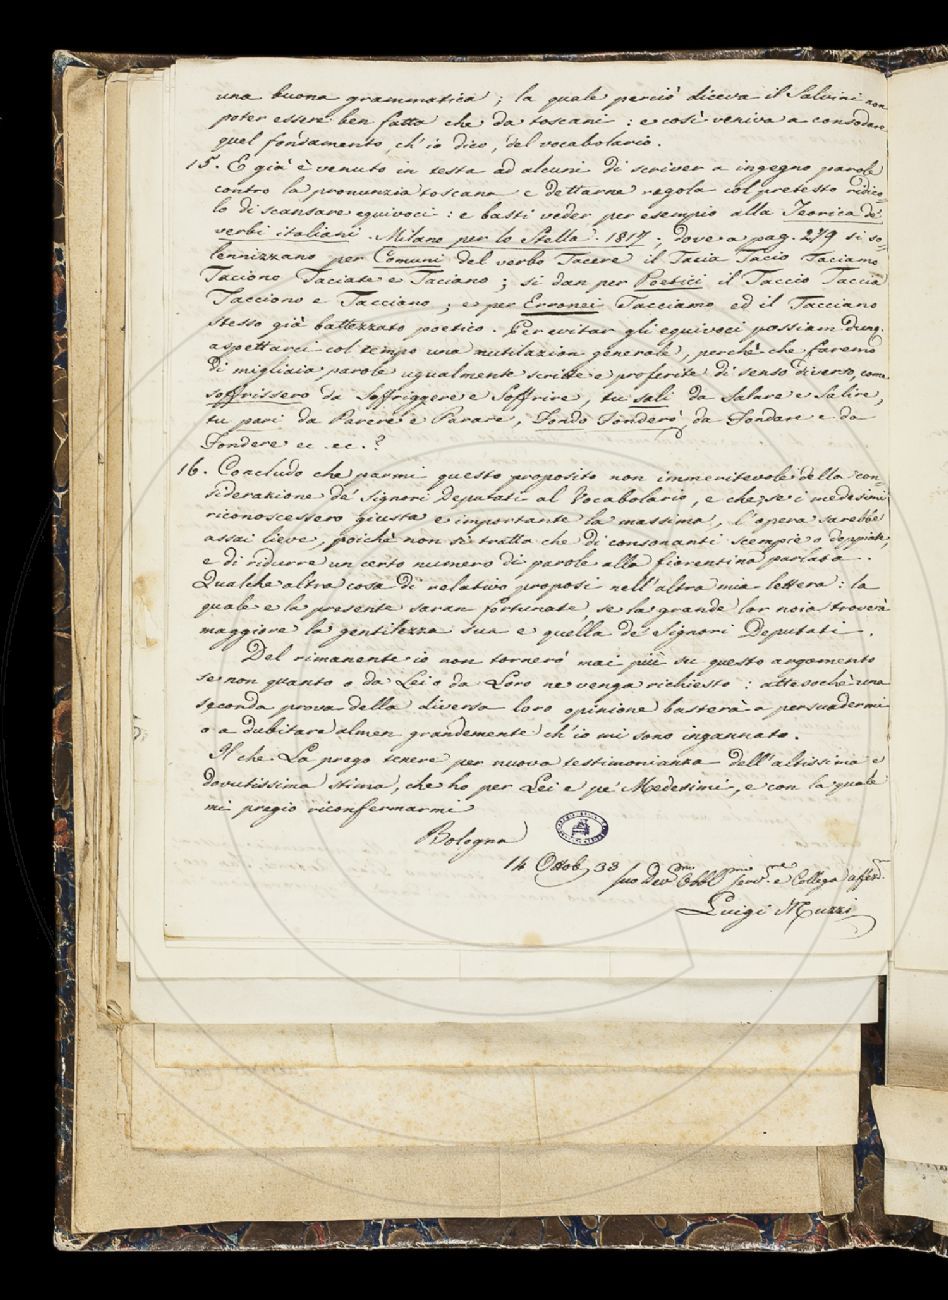 una buona grammatica; la quale perciò diceva il Salvini non
poter essere ben fatta che da toscani: e così veniva a consodare
quel fondamento, ch'io dico, del vocabolario.
15. E già è venuto in testa ad alcuni di scriver a ingegno parole
contro la pronunzia toscana e dettarne regola col pretesto ridico-
lo di scansare equivoci: e basti veder per esempio alla Teorica de'
verbi italiani. Milano per lo Stella. 1817; dove a pag. 279 si so-
lennizzano per Comuni del verbo Tacere il Tacia Tacio Taciamo
Taciono Taciate e Taciano; si dan per Poetici il Taccio Taccia
Tacciono e Tacciano; e per Erronei Tacciamo ed il Tacciano
stesso già battezzato poetico. Per evitar gli equivoci possiam dunq.
aspettarci col tempo una mutilazion generale, perchè che faremo
di migliaia parole ugualmente scritte e proferite di senso diverso, come
soffrissero da Soffriggere e Soffrire, tu sali da Salare e Salire,
tu pari da Parere e Parare, Fondo Fonderò da Fondare e da
Fondere ec. ec.?
16. Concludo che parmi questo proposito non immeritevole della con-
siderazione de' Signori Deputati al Vocabolario, e che se i medesimi
riconoscessero giusta e importante la massima, l'opera sarebbe
assai lieve, poichè non si tratta che di consonanti scempie o doppiate,
e di ridurre un certo numero di parole alla fiorentina parlata.
Qualche altra cosa di relativo proposi nell'altra mia lettera: la
quale e la presente saran fortunate, se la grande lor noia troverà
maggiore la gentilezza sua e quella de' Signori Deputati.
Del rimanente io non tornerò mai più su questo argomento
se non quanto o da Lei o da Loro ne venga richiesto: attesochè una
seconda prova della diversa loro opinione basterà a persuadermi
o a dubitare almen grandemente ch'io mi sono ingannato.
Il che La prego tenere per nuova testimonianza dell'altissima e
dovutissima stima, che ho per Lei e pe' Medesimi, e con la quale
mi pregio riconfermarmi
Bologna
14 Ottob. 33
suo Dev.mo Obbl.mo serv.re e Collega affez.
Luigi Muzzi